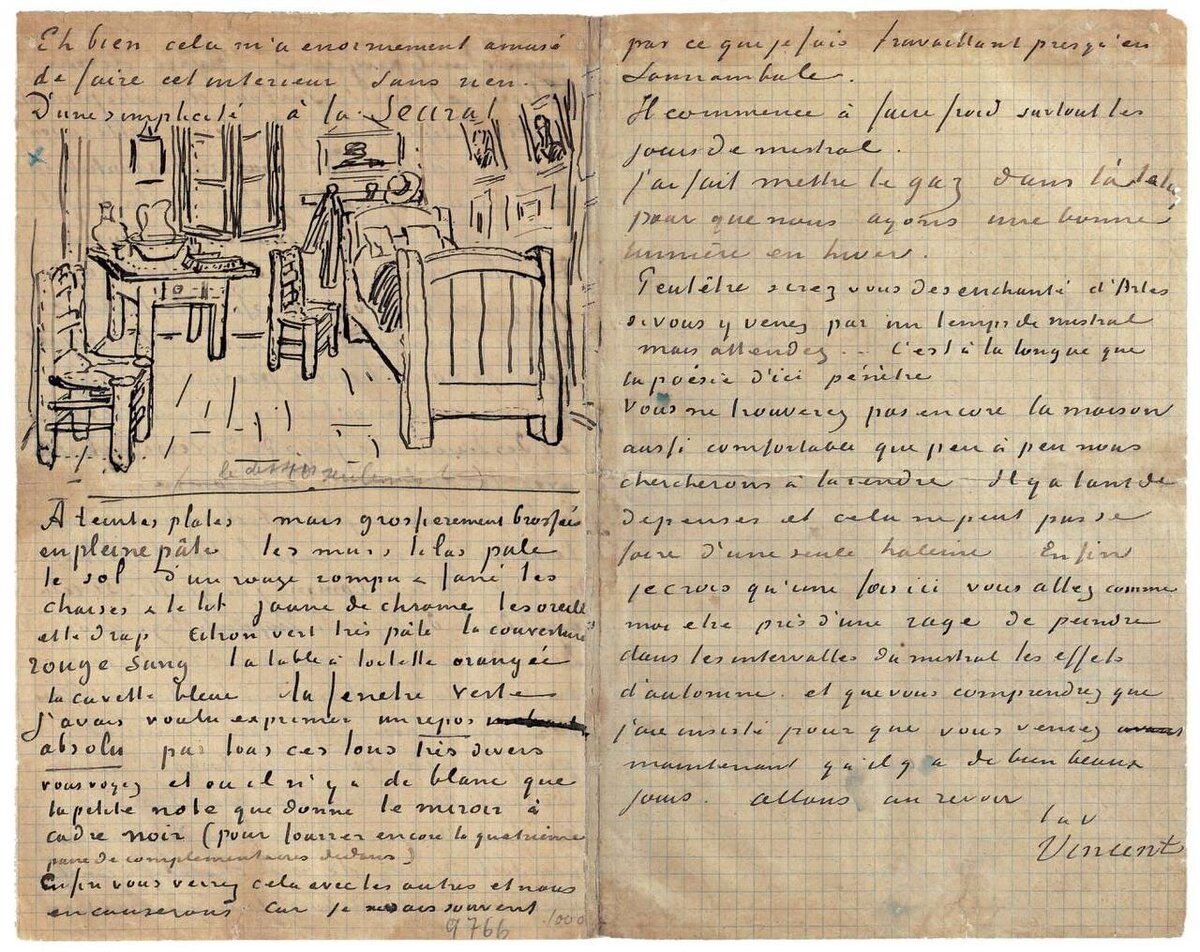 Eh bien cela m'a enormement amusé
de faire cet interieur sans rien.
D'une simplicité à la Seurat
le dessin seulement
A teintes plates mais grossierement brossées
en pleine pâte les murs lilas pale
le sol d'un rouge rompu & fané les
chaises & le lit jaune de chrome les oreill
et le drap citron vert très pâle la couverture
rouge sang la table à toilette orangée
la cuvette bleue la fenetre verte
j'avais voulu exprimer un repos
absolu par tous ces tons très divers
vous voyez et où il n'y a de blanc que
la petite note que donne le miroir à
cadre noir (pour fourrer encore la quatrième
paire de complementaires dedans)
Enfin vous verrez cela avec les autres et nous
en causerons car je ne sais souvent
9766 1000
par ce que je fais travaillant presqu'en
somnambule.
Il commence à faire froid surtout les
jours de mistral.
j'ai fait mettre le gaz dans l'atelier
pour que nous ayons une bonne
lumière en hiver.
Peutêtre serez vous desenchanté d'Arles
si vous y venez par un temps de mistral
mais attendez... C'est à la longue que
la poésie d'ici pénètre
Vous ne trouverez pas encore la maison
aussi comfortable que peu à peu nous
chercherons à la rendre Il y a tant de
depenses et cela ne peut pas se
faire d'une seule haleine Enfin
je crois qu'une fois ici vous allez comme
moi etre pris d'une rage de peindre
dans les intervalles du mistral les effets
d'automne. et que vous comprendrez que
j'aie insisté pour que vous veniez
maintenant qu'il y a de bien beaux
jours. allons au revoir
t. à v.
Vincent